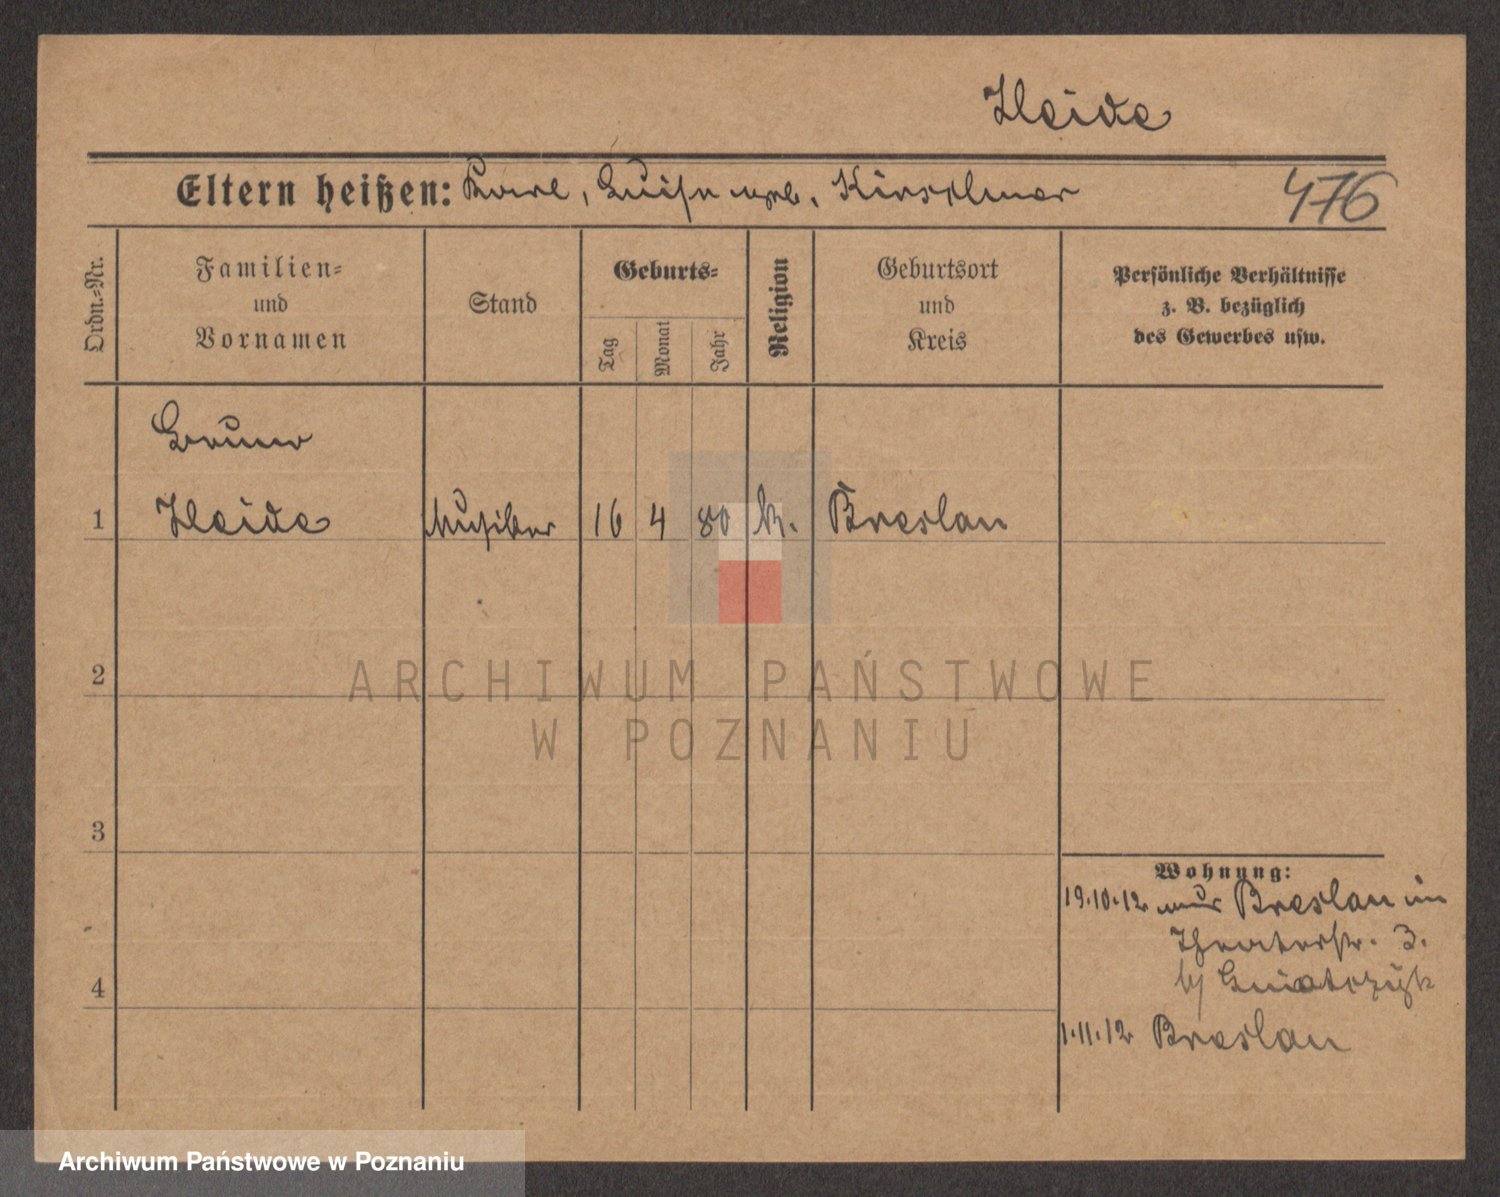 Heide
Eltern heißen: Karl, Luise geb. Kirschner
476
Ordn.-Nr.
Familien-
und
Vornamen
Stand
Geburts-
Tag
Monat
Jahr
Religion
Geburtsort
und
Kreis
Persönliche Verhältnisse
z. B. bezüglich
des Gewerbes usw.
Bruno
1 Heide Musiker 16 4 80 k. Breslau
2
3
4
Wohnung:
19.10.12 aus Breslau in
Theaterstr. 3.
bj
1.11.12 Breslau
ARCHIWUM PAŃSTWOWE
W POZNANIU
Archiwum Państwowe w Poznaniu